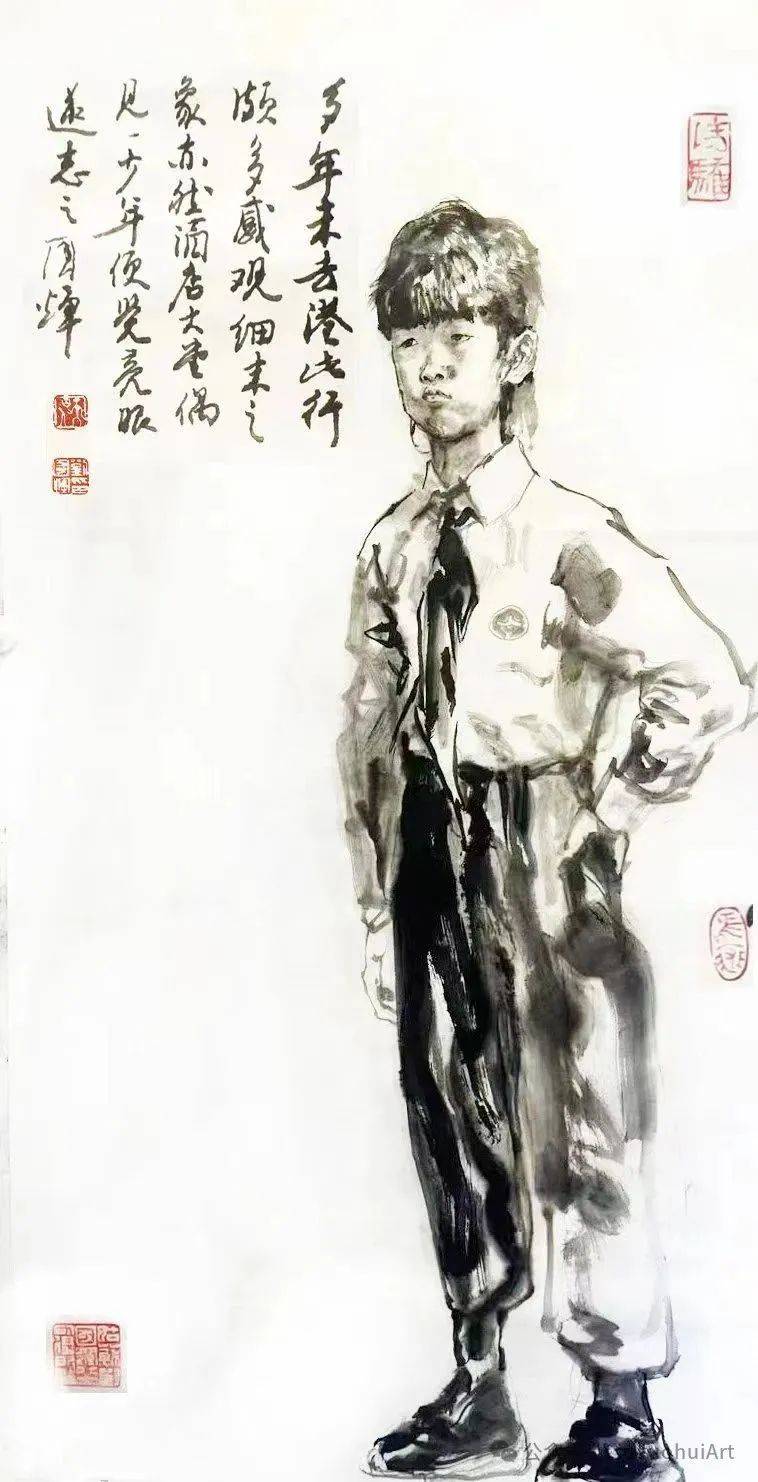 多年未去港此行
颇多感观细末之
象亦然酒店大堂偶
见一少年便觉亮眼
遂志之国辉
公众号
huiArt